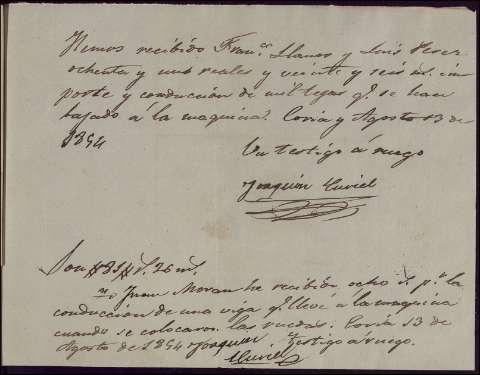 Hemos recibido Fran.co Llanos y Luis
ochenta y un reales y veinte y seis ms. im
porte y conducción de mil tejas q.e se han
bajado á la maquina. Coria y Agosto 13 de
1854
Un testigo á ruego
Joaquin Curiel
Son #81# r.s 26 ms.
Yo Juan Moran he recibido ocho r.s p.r la
conducción de una viga q.e llevé á la maquina
cuando se colocaron las ruedas. Coria 13 de
Agosto de 1854 Joaquin testigo a ruego.
Curiel